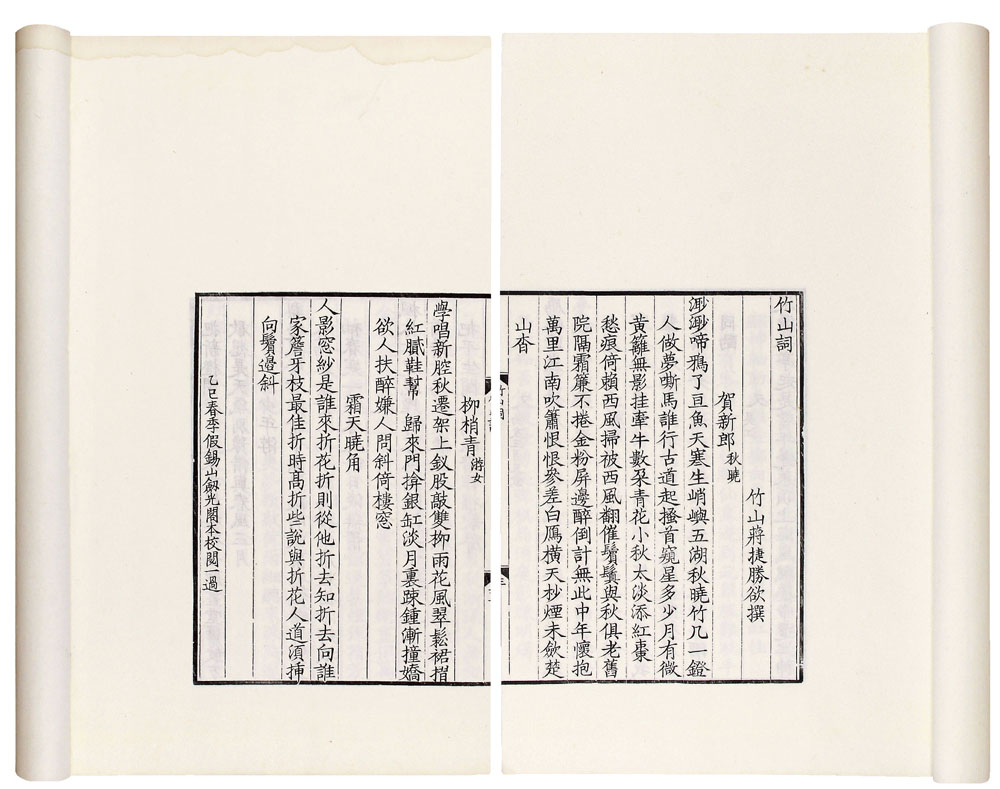 竹山詞
竹山蔣捷勝欲撰
賀新郎秋曉
渺渺啼鴉了亘魚天寒生峭嶼五湖秋曉竹几一鐙
人做夢嘶馬誰行古道起搔首窺星多少月有微
黃籬無影挂牽牛數朵青花小秋太淡添紅棗
愁痕倚賴西風掃被西風翻催鬢鬒與秋俱老舊
院隔霜簾不捲金粉屏邊醉倒計無此中年懷抱
萬里江南吹簫恨恨參差白鴈橫天杪煙未斂楚
山杳
柳梢青游女
學唱新腔秋遷架上釵股敲雙柳雨花風翠鬆裙褶
紅膩鞋幫 歸來門掩銀缸淡月裏踈鍾漸撞嬌
欲人扶醉嫌人問斜倚樓窓
霜天曉角
人影窓紗是誰來折花折則從他折去知折去向誰
家簷牙枝最佳折時髙折些說與折花人道須揷
向鬢邊斜
乙巳春季假錫山劔光閣本校閱一過